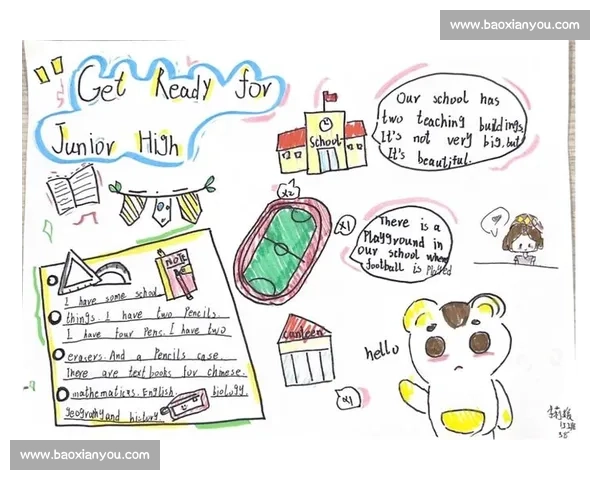 www.baoxianyou.com
Get Ready for
Junior High
School
Our school has
two teaching buildings.
It's not very big, but
It's beautiful.
x2
x1
There is a
Playground in
our school where
football is played
?
Note
I have some school
things. I have two Pencils.
I have four Pens. I have two
erasers. And a Pencils case.
There are textbooks for chinese.
mathematics. English. biology.
geography and history.
canteen
hello
x1
www.baoxianyou.com